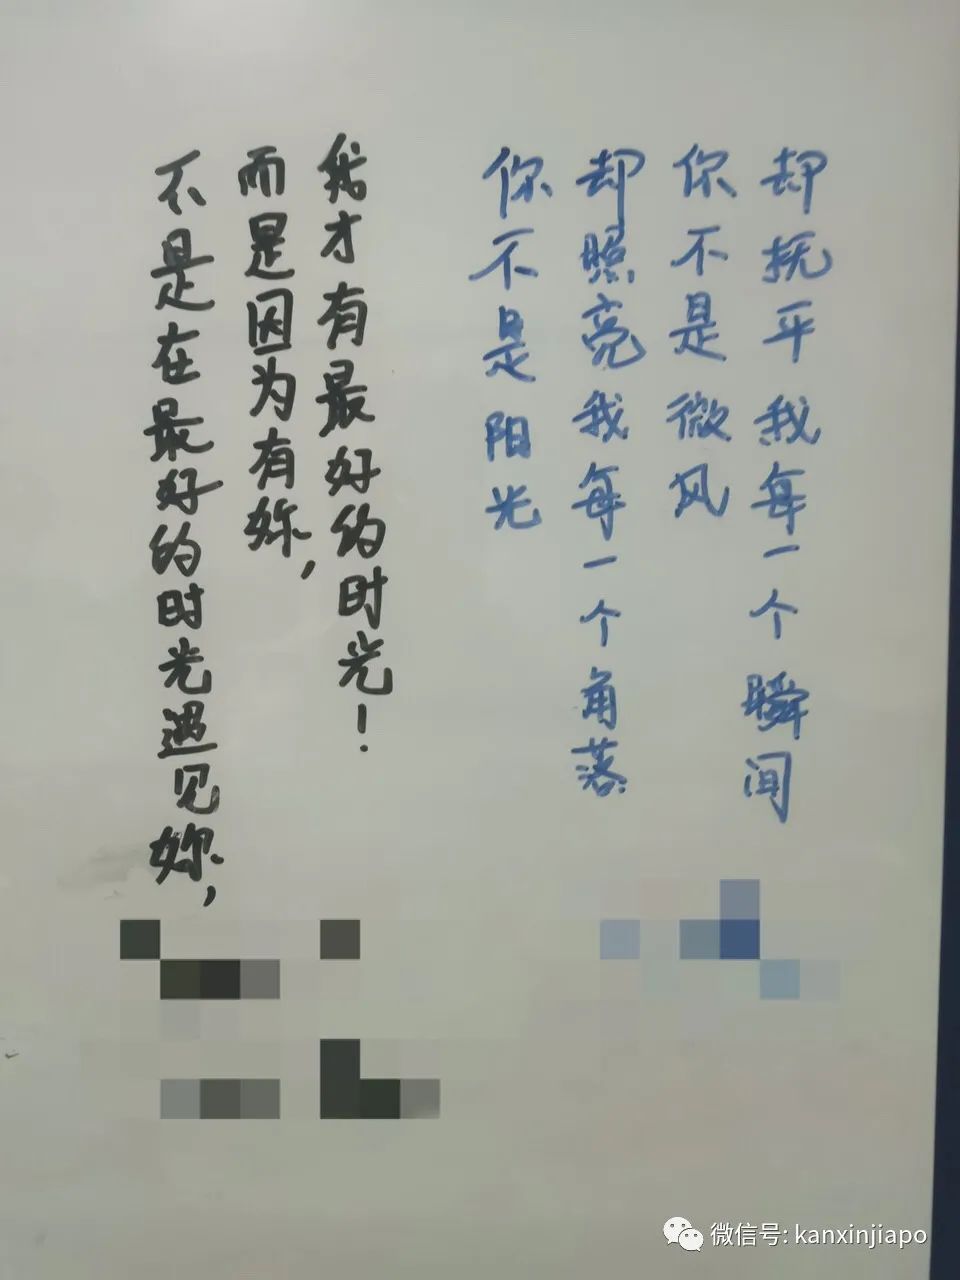 不是在最好的时光遇见妳，
而是因为有妳，
我才有最好的时光！
你不是阳光
却照亮我每一个角落
你不是微风
却抚平我每一个瞬间
微信号: kanxinjiapo